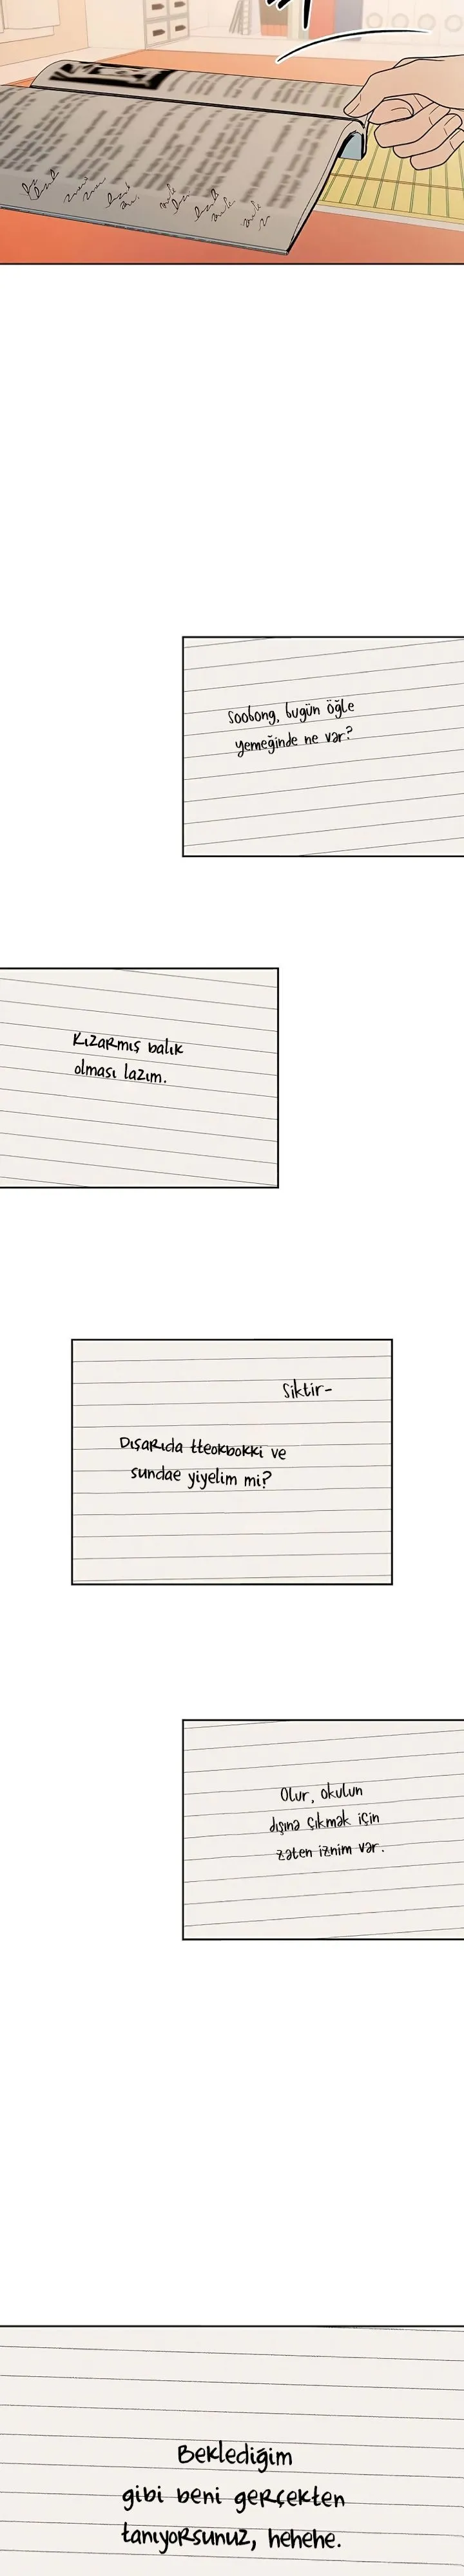 Soobong, bugün öğle
yemeğinde ne var?
Kızarmış balık
olması lazım.
Siktir-
Dışarıda tteokbokki ve
sundae yiyelim mi?
Olur, okulun
dışına çıkmak için
zaten iznim var.
Beklediğim
gibi beni gerçekten
tanıyorsunuz, hehehe.